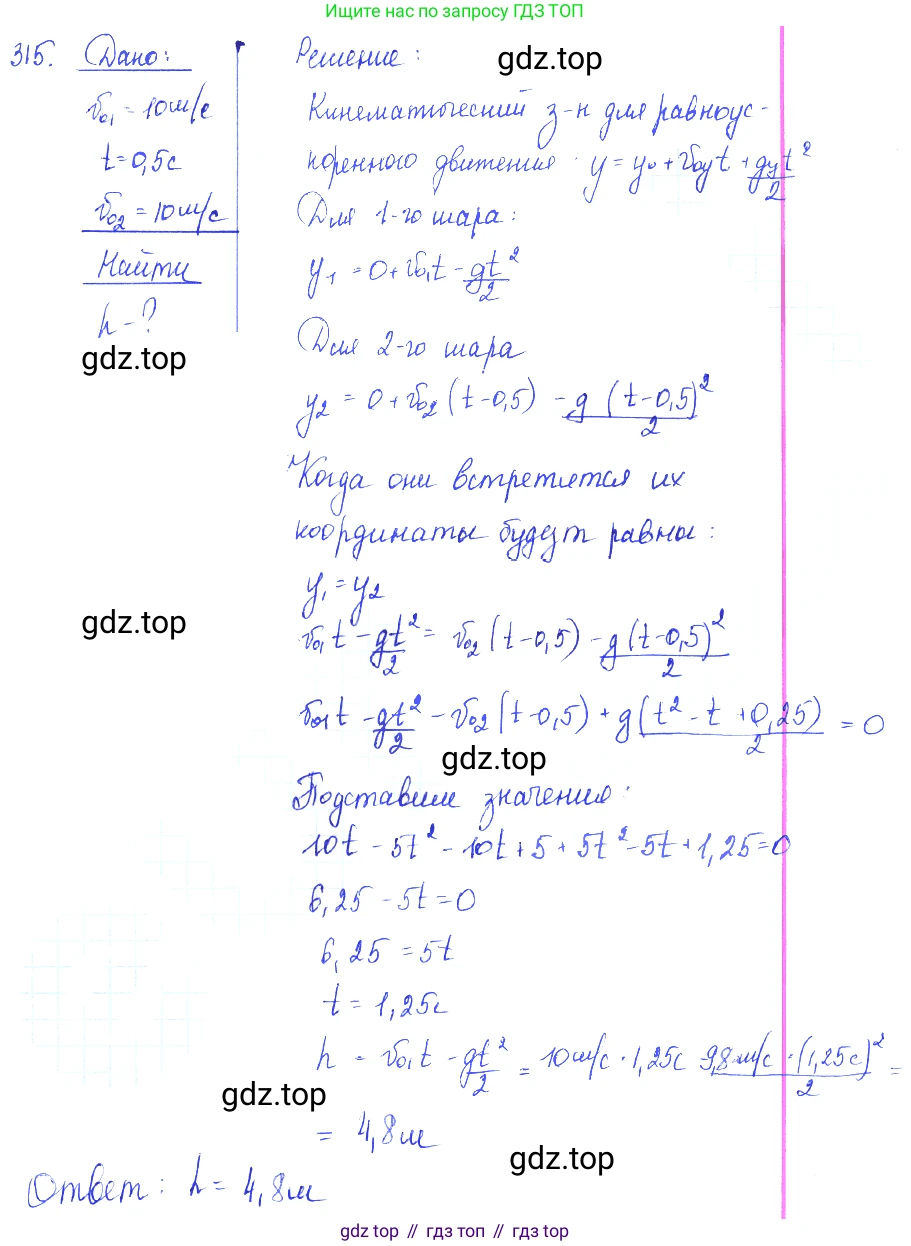 Ищите нас по запросу ГДЗ ТОП
315. Дано:
v₀₁ = 10м/с
t = 0,5с
v₀₂ = 10м/с
Найти
h - ?
gdz.top
Решение:
gdz.top
Кинематический з-н для равноус-
коренного движения: y = y₀ + v₀yt + gyt²/2
Для 1-го шара:
y₁ = 0 + v₀₁t - gt²/2
Для 2-го шара
y₂ = 0 + v₀₂ (t - 0,5) - g (t - 0,5)²/2
Когда они встретятся их
координаты будут равны:
y₁ = y₂
gdz.top
v₀₁t - gt²/2 = v₀₂ (t - 0,5) - g(t - 0,5)²/2
v₀₁t - gt²/2 - v₀₂ (t - 0,5) + g(t² - t + 0,25)/2 = 0
gdz.top
Подставим значения:
10t - 5t² - 10t + 5 + 5t² - 5t + 1,25 = 0
6,25 - 5t = 0
6,25 = 5t
t = 1,25с
h = v₀₁t - gt²/2 = 10м/с · 1,25с 9,8м/с · (1,25с)²/2 =
gdz.top
= 4,8м
gdz.top
Ответ: h = 4,8м
gdz top // гдз топ // gdz top